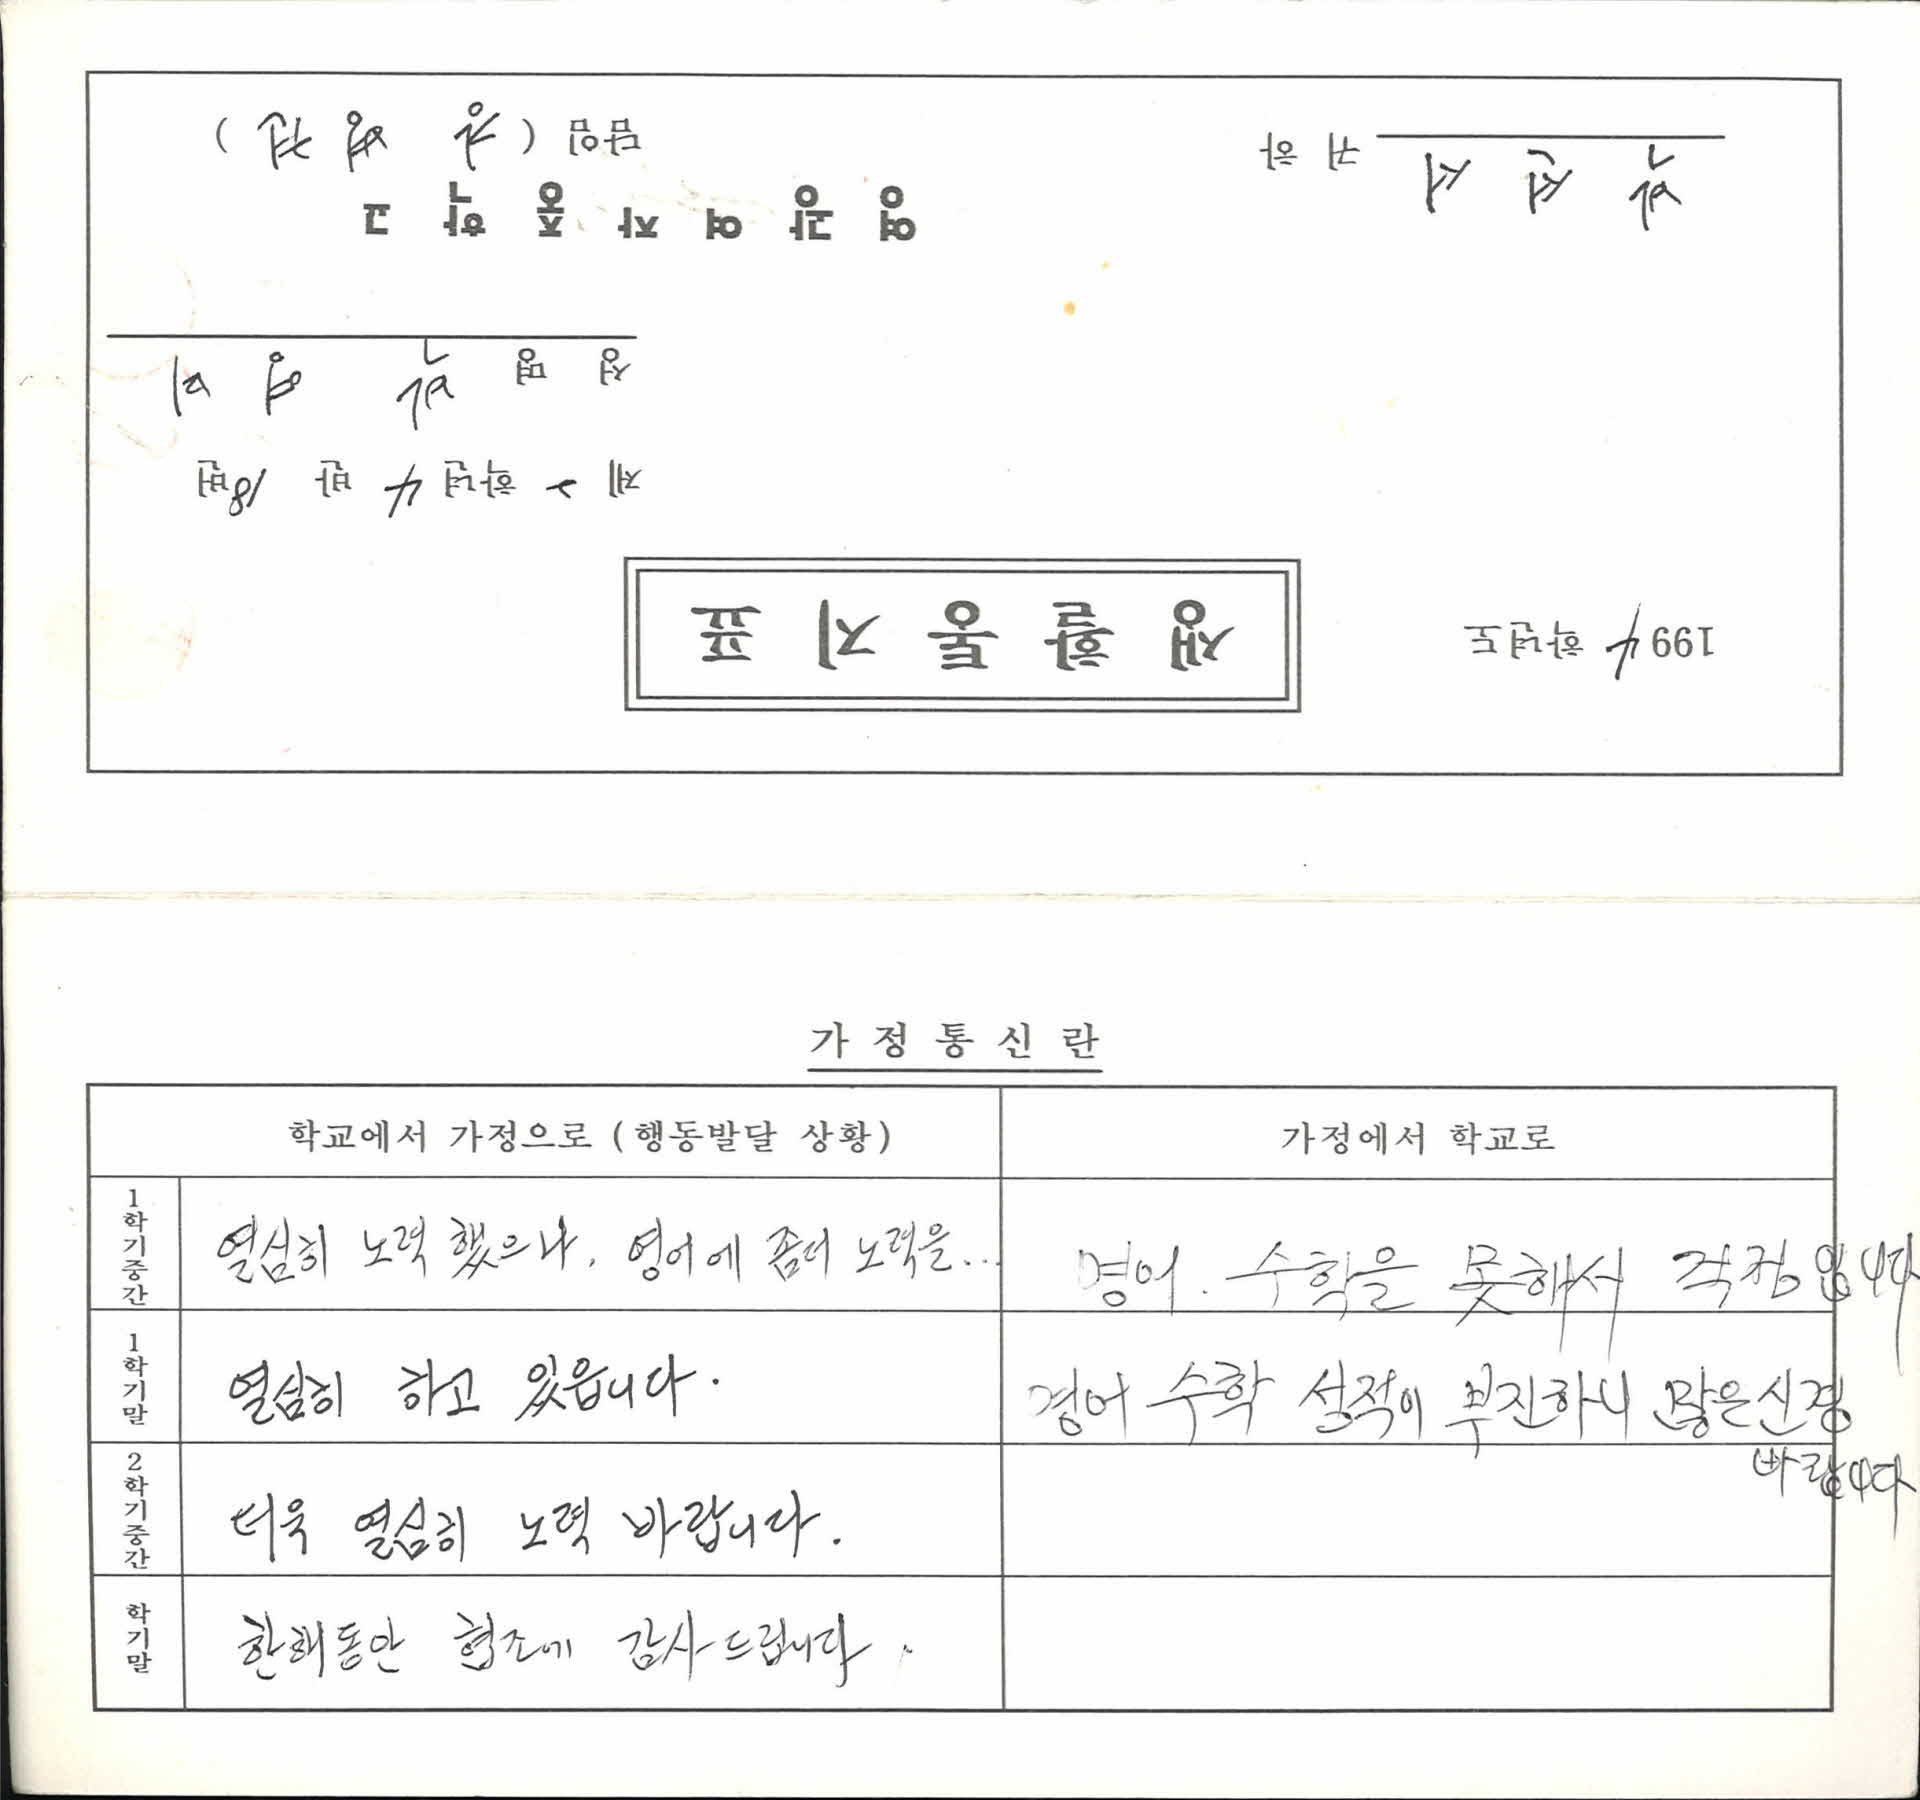 1994 학년도
생활통지표
제 2 학년 4 반 18번
성명 박 영 미
영광여자중학교
담임 ( )
박 귀하
가정통신란
학교에서 가정으로 (행동발달 상황)
가정에서 학교로
1학기중간
열심히 노력 했으나, 영어에 좀더 노력을...
영어. 수학을 못해서 걱정 입니다
1학기말
열심히 하고 있읍니다.
영어 수학 성적이 부진하니 많은 신경
바랍니다
2학기중간
더욱 열심히 노력 바랍니다.
학기말
한해동안 협조에 감사드립니다.